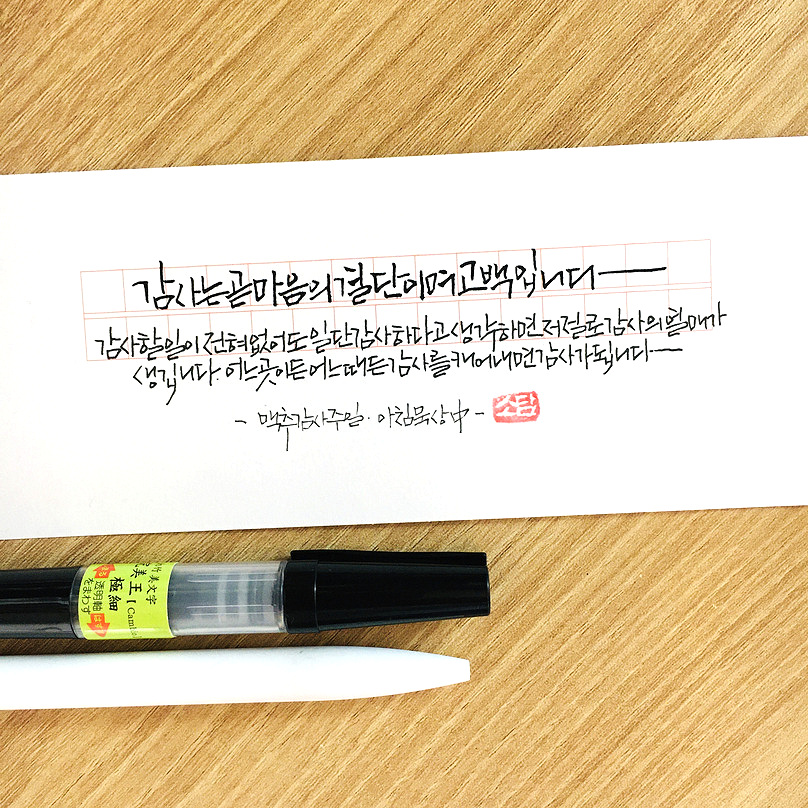 감사는 곧 마음의 결단이며 고백입니다
감사할 일이 전혀 없어도 일단 감사하다고 생각하면 저절로 감사의 열매가
생깁니다. 어느 곳이든 어느 때든 감사를 캐어내면 감사가 됩니다
- 맥추감사주일 · 아침묵상 中 -
소담
美文字
美王 [Caml
極細
透明軸
をまわす